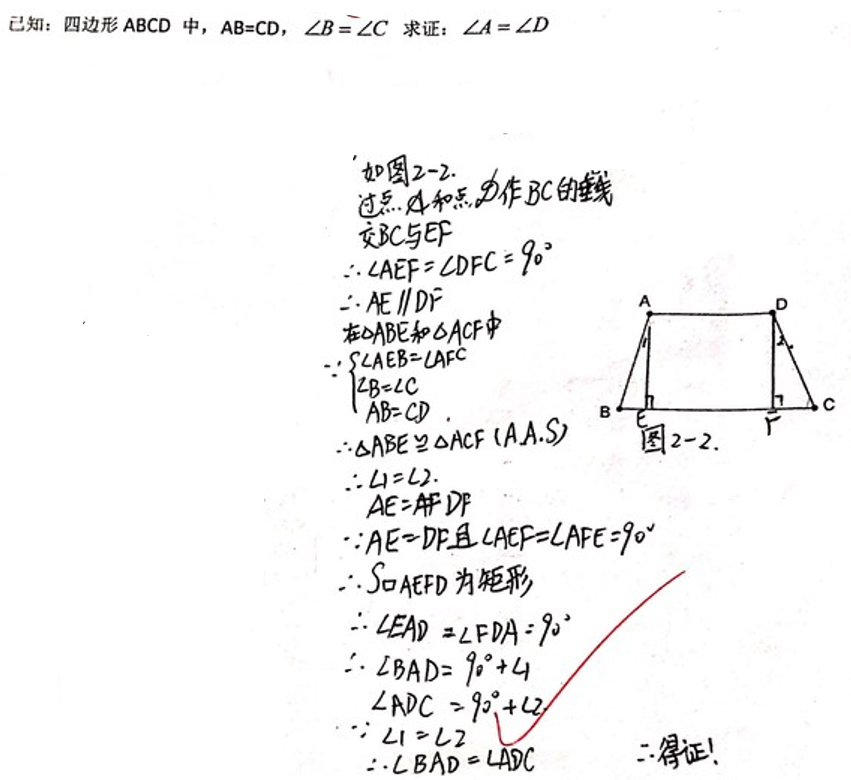 已知：四边形 ABCD 中，AB=CD，∠B=∠C 求证：∠A=∠D
如图2-2.
过点A和点D作BC的垂线
交BC与EF
∴∠AEF=∠DFC=90°
∴AE∥DF
在△ABE和△ACF中
∵{∠AEB=∠AFC
∠B=∠C
AB=CD.
∴△ABE≌△ACF(A.A.S)
∴∠1=∠2.
AE=DF
∵AE=DF且∠AEF=∠AFE=90°
∴S□AEFD为矩形
∴∠EAD=∠FDA=90°
∴∠BAD=90°+∠1
∠ADC=90°+∠2
∵∠1=∠2
∴∠BAD=∠ADC
∴得证!
A D
1 2
B E F C
图2-2.